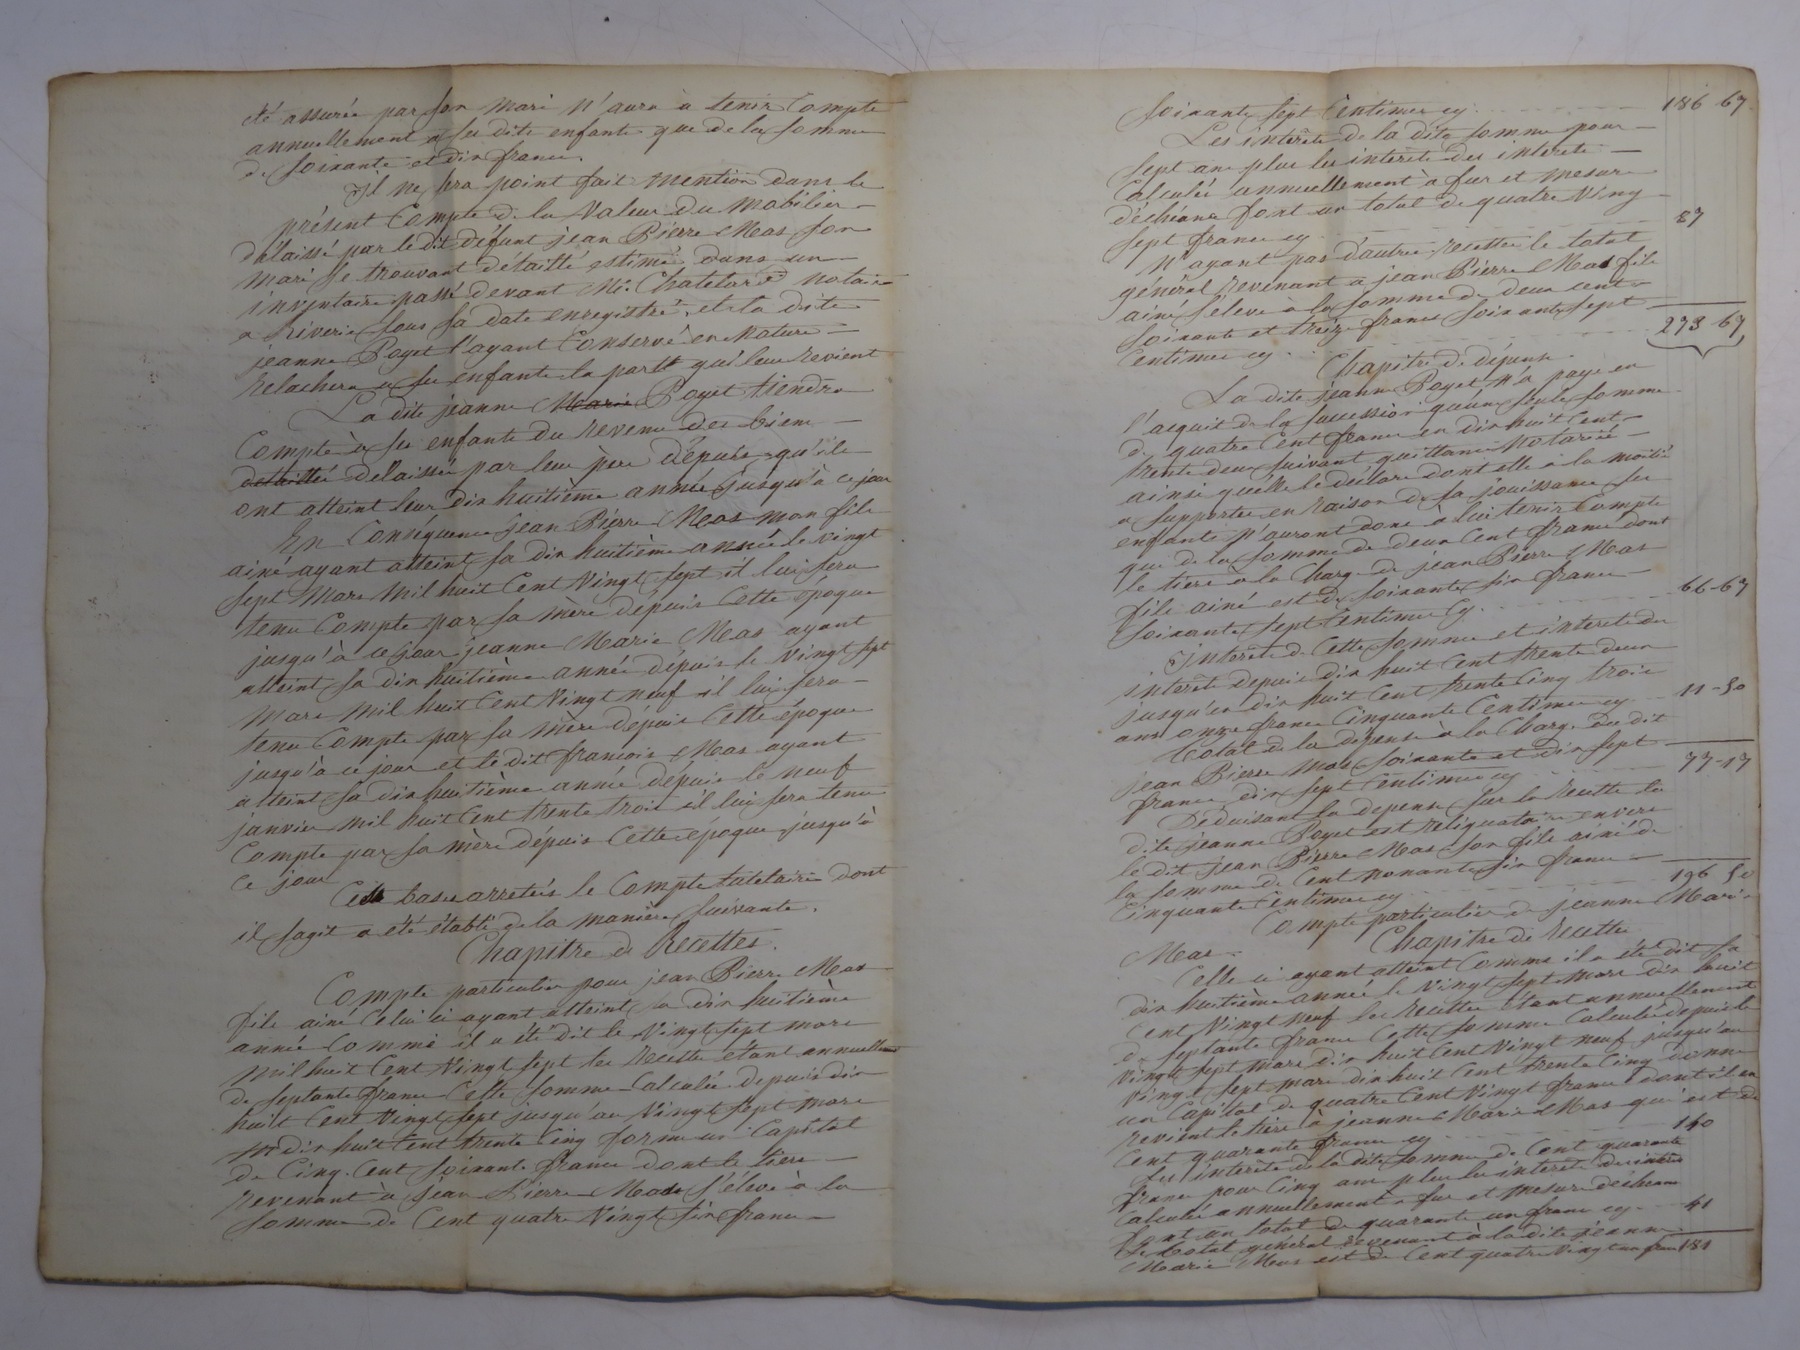 été assurée par son mari n'aura à tenir Compte
annuellement à ses dits enfants que de la somme
de soixante et dix francs.
Il ne sera point fait mention dans le
présent Compte de la Valeur du Mobilier
délaissé par le dit défunt jean Pierre Mas son
mari se trouvant détaillé estimé dans un
inventaire passé devant Me. Chatelard notaire
a Riverie sous sa date enregistré, et la dite
jeanne Poyet l'ayant Conservé en Nature
Relachera a ses enfants la part qui leur Revient
La dite jeanne Marie Poyet tiendra
Compte à ses enfants du Revenu des biens
détaillé delaissés par leur père dépuis qu'ils
ont atteint leur dix huitième année jusqu'à ce jour
En Conséquence jean Pierre Mas mon fils
ainé ayant atteint sa dix huitième année le vingt
sept Mars Mil huit Cent Vingt sept il lui sera
tenu Compte par sa mère dépuis Cette époque
jusqu'à ce jour jeanne Marie Mas ayant
atteint sa dix huitième année dépuis le Vingt sept
Mars Mil huit Cent Vingt neuf il lui sera
tenu Compte par sa mère dépuis Cette époque
jusqu'à ce jour et le dit françois Mas ayant
atteint sa dix huitième année dépuis le neuf
janvier Mil huit Cent trente trois il lui sera tenu
Compte par sa mère dépuis Cette époque jusqu'à
ce jour
Ces bases arretées le Compte tutelaire dont
il sagit a été établi de la manière suivante.
Chapitre de Recettes.
Compte particulier pour jean Pierre Mas
fils ainé Celui ci ayant atteint sa dix huitième
année Comme il a été dit le Vingt sept mars
Mil huit Cent Vingt sept les Recettes étant annuellement
de septante francs Cette somme Calculée depuis dix
huit Cent Vingt sept jusqu'au Vingt sept Mars
dix huit Cent trente Cinq forme un Capital
de Cinq Cent soixante francs dont le tiers
Revenant à jean Pierre Mas s'éleve à la
somme de Cent quatre Vingt six francs
soixante sept Centimes cy 186 67
Les intérêts de la dite somme pour
sept ans plus les intérêts des intérêts
Calculés annuellement à fur et mesure
déchéance font un total de quatre Vingt
sept francs cy 87
N'ayant pas d'autres recettes le total
général Revenant a jean Pierre Mas fils
ainé s'éleve à la somme de deux cent
soixante et treize francs soixante sept
Centimes cy 273 67
Chapitre de dépense.
La dite jeanne Poyet n'a payé en
l'acquit de la succession qu'une seule somme
de quatre Cent francs en dix huit Cent
trente deux suivant quittance Notariée
ainsi qu'elle le déclare dont elle à la moitié
a supporter en Raison de sa jouissance ses
enfants n'auront donc à lui tenir Compte
que de la somme de deux Cent francs dont
le tiers à la Charge de jean Pierre Mas
fils ainé est de soixante six francs
soixante sept Centimes Cy 66-67
Intérêts de Cette somme et intérêts des
intérêts depuis dix huit Cent trente deux
jusqu'en dix huit Cent trente Cinq trois
ans onze francs Cinquante Centimes cy 11-50
Total de la dépense à la Charge du dit
jean Pierre Mas soixante et dix sept
francs dix sept Centimes cy 77-17
Déduisant la dépense sur la Recette la
dite jeanne Poyet est Reliquataire envers
le dit jean Pierre Mas son fils ainé de
la somme de Cent nonante six francs
Cinquante Centimes cy 196 50
Compte particulier de jeanne Marie
Mas.
Chapitre de Recette
Celle ci ayant atteint Comme il a été dit sa
dix huitième année le Vingt sept Mars dix huit
Cent Vingt Neuf les Recettes étant annuellement
de septante francs Cette somme Calculée depuis le
Vingt sept mars dix huit Cent Vingt neuf jusqu'au
Vingt sept mars dix huit Cent trente Cinq donne
un Capital de quatre Cent Vingt francs dont il en
Revient le tiers à jeanne Marie Mas qui est de
Cent quarante francs cy 140
Les intérêts de la dite somme de Cent quarante
francs pour Cinq ans plus les intérêts des intérêts
Calculés annuellement à fur et mesure déchéance
font un total de quarante un francs cy 41
Le total général Revenant à la dite jeanne
Marie Mas est de Cent quatre Vingt un francs 181